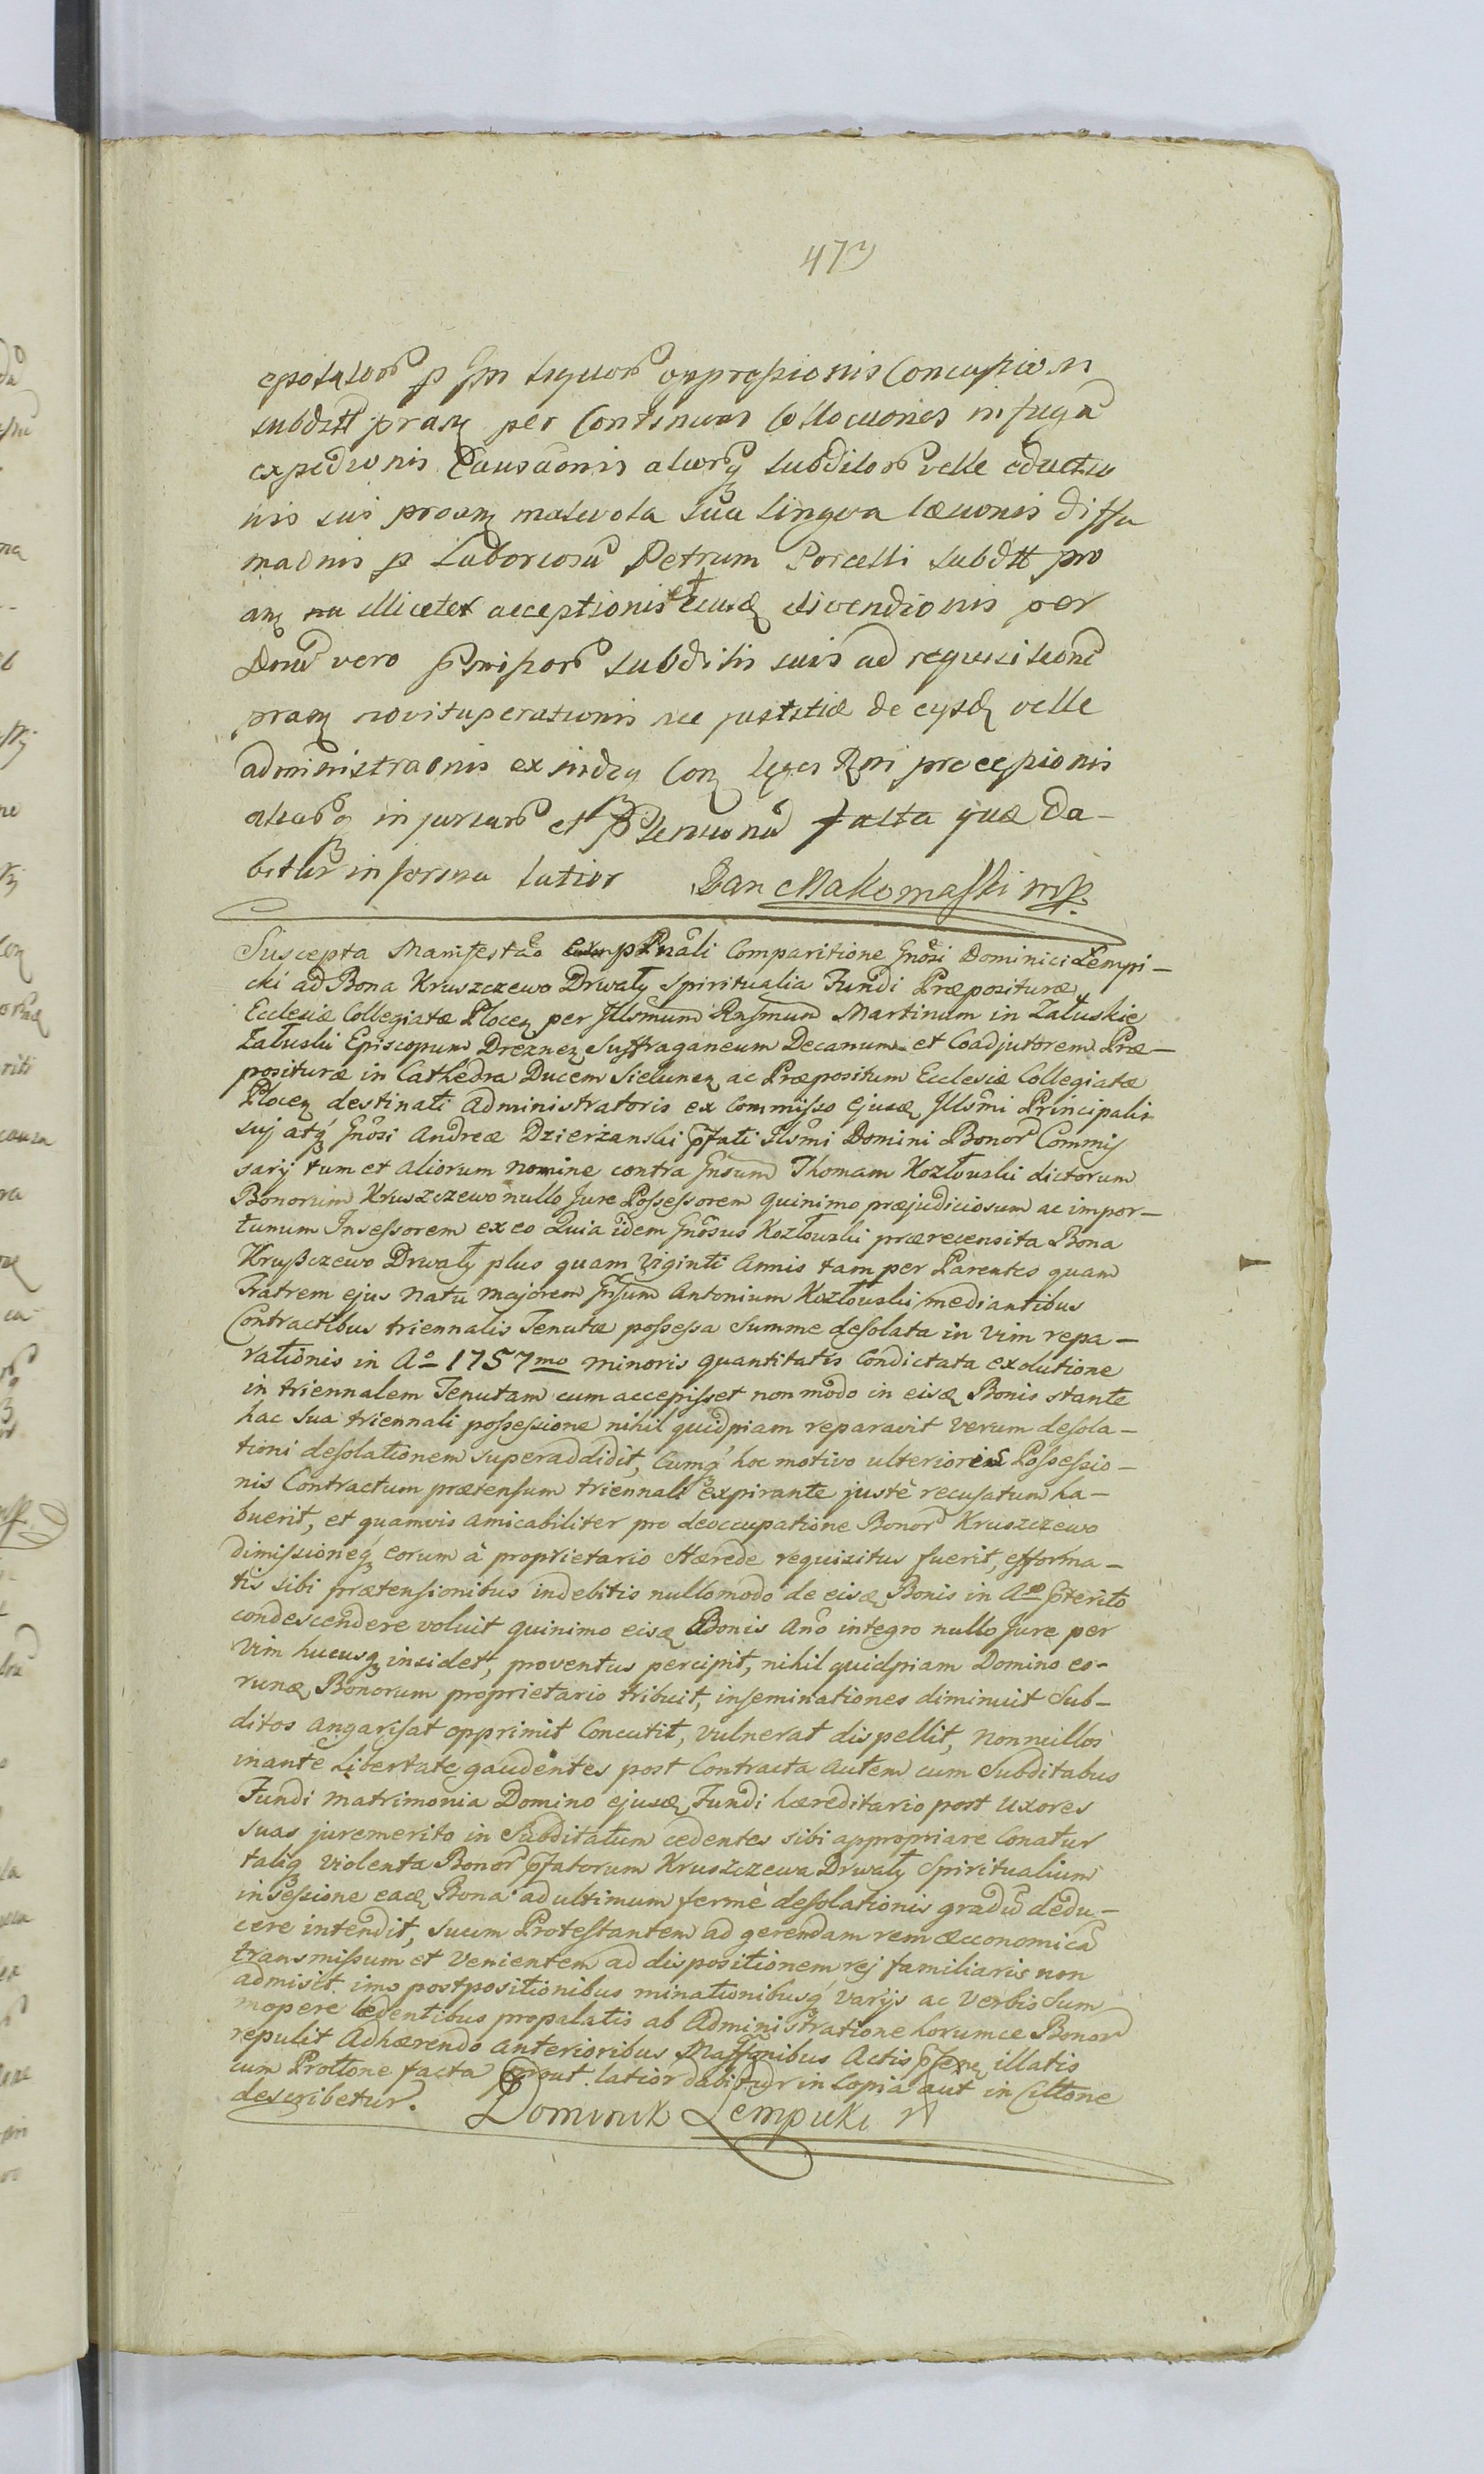 473
subditt prasq per Continuas Collocuones in fuga
expedionis Causaonis aliorq subditor velle eductio
nis sui proasq malevola sua lingva læuonis diffa
maonis p Laboriosu Petrum Porcelli subdtt pro
asq illicite acceptionis et ejusd divendionis per
Dnm vero subditis suis ad requisitione
prasq nec justitiæ de eysd velle
administraonis exindeq Con leges Rni precepionis
aliarq injuriar et ptensionu facta quæ da-
bitur in forma latior Jan Makomaski mp.
Suscepta Manifestao psnali Comparitione Gnosi Dominici Lempi-
cki ad Bona Kruszczewo Drwały Spiritualia Fundi Præposituræ
Ecclesiæ Collegiatæ Plocen per Illsmum Rnsmum Martinum in Załuskie
Załuski Episcopum Dreznen Suffraganeum Decanum et Coadjutorem Præ-
posituræ in Cathedra Ducem Sielunen ac Præpositum Ecclesiæ Collegiatæ
Plocen destinati Administratoris ex Commisso ejusd Illsmi Principalis
suj atq Gnosi Andreæ Dzierżanski pfati Ilsmi Domini Bonor Commis
sarij tum et aliorum nomine contra Gnsum Thomam Kozłowski dictorum
Bonorum Kruszczewo nullo Jure Possessorem quinimo præjudiciosum ac impor-
tunum Insessorem ex eo Quia idem Gnosus Kozłowski prærecensita Bona
Krußczewo Drwały plus quam Viginti Annis tam per Parentes quam
Fratrem ejus natu majorem Gnsum Antonium Kozłowski mediantibus
Contractibus triennalis Tenutæ possessa Summe desolata in vim repa-
rationis in Ao 1757mo minoris quantitatis Condictata exolutione
in triennalem Tenutam cum accepisset non modo in eisd Bonis stante
hac sua triennali possessione nihil quidpiam reparavit verum desola-
tioni desolationem superaddidit, Cumq hoc motivo ulterioris Possessio-
nis Contractum prætensum triennali expirante justè recusatum ha-
buerit, et quamvis amicabiliter pro deoccupatione Bonor Kruszczewo
dimissioneq eorum à proprietario Hærede requisitus fuerit, efforma-
tis sibi prætensionibus indebitis nullomodo de eisd Bonis in Ao pterito
condescendere voluit quinimo eisd Bonis Ano integro nullo Jure per
Vim hucusq insidet, proventus percipit, nihil quidpiam Domino eo-
rund Bonorum proprietario tribuit, inseminationes diminuit Sub-
ditos angarisat opprimit Concutit, vulnerat dispellit, nonnullos
inante Libertate gaudentes post Contracta autem cum Subditabus
Fundi matrimonia Domino ejusd Fundi hæreditario post uxores
suas juremerito in Subditatum cedentes sibi appropriare Conatur
taliq violenta Bonor pfatorum Kruszczewa Drwały Spiritualium
insessione eaed Bona ad ultimum fermè desolationis gradu dedu-
cere intendit, sicum Protestantem ad gerendam rem œconomica
transmissum et venientem ad dispositionem rej familiaris non
admisit imo postpositionibus minationibusq varijs ac verbis Sum
mopere lædentibus propalatis ab Administratione horumce Bonor
repulit Adhærendo anterioribus Maffõnibus Actis psenq illatis
cum Prottone facta prout latior dabitur in Copia aut in Cittone
describetur. Dominik Lempicki